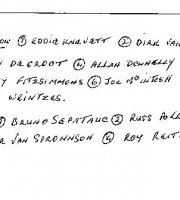 OW ① EDDIE KNEVETT ② DIRK VAN
N DEGROOT ④ ALLAN DONNELLY
Y FITZSIMMONS ⑥ JOE MCINTOSH
WEINTZES.
① BRUNO SEPATAUC ② RUSS
VAN SPRONNSON ④ ROY